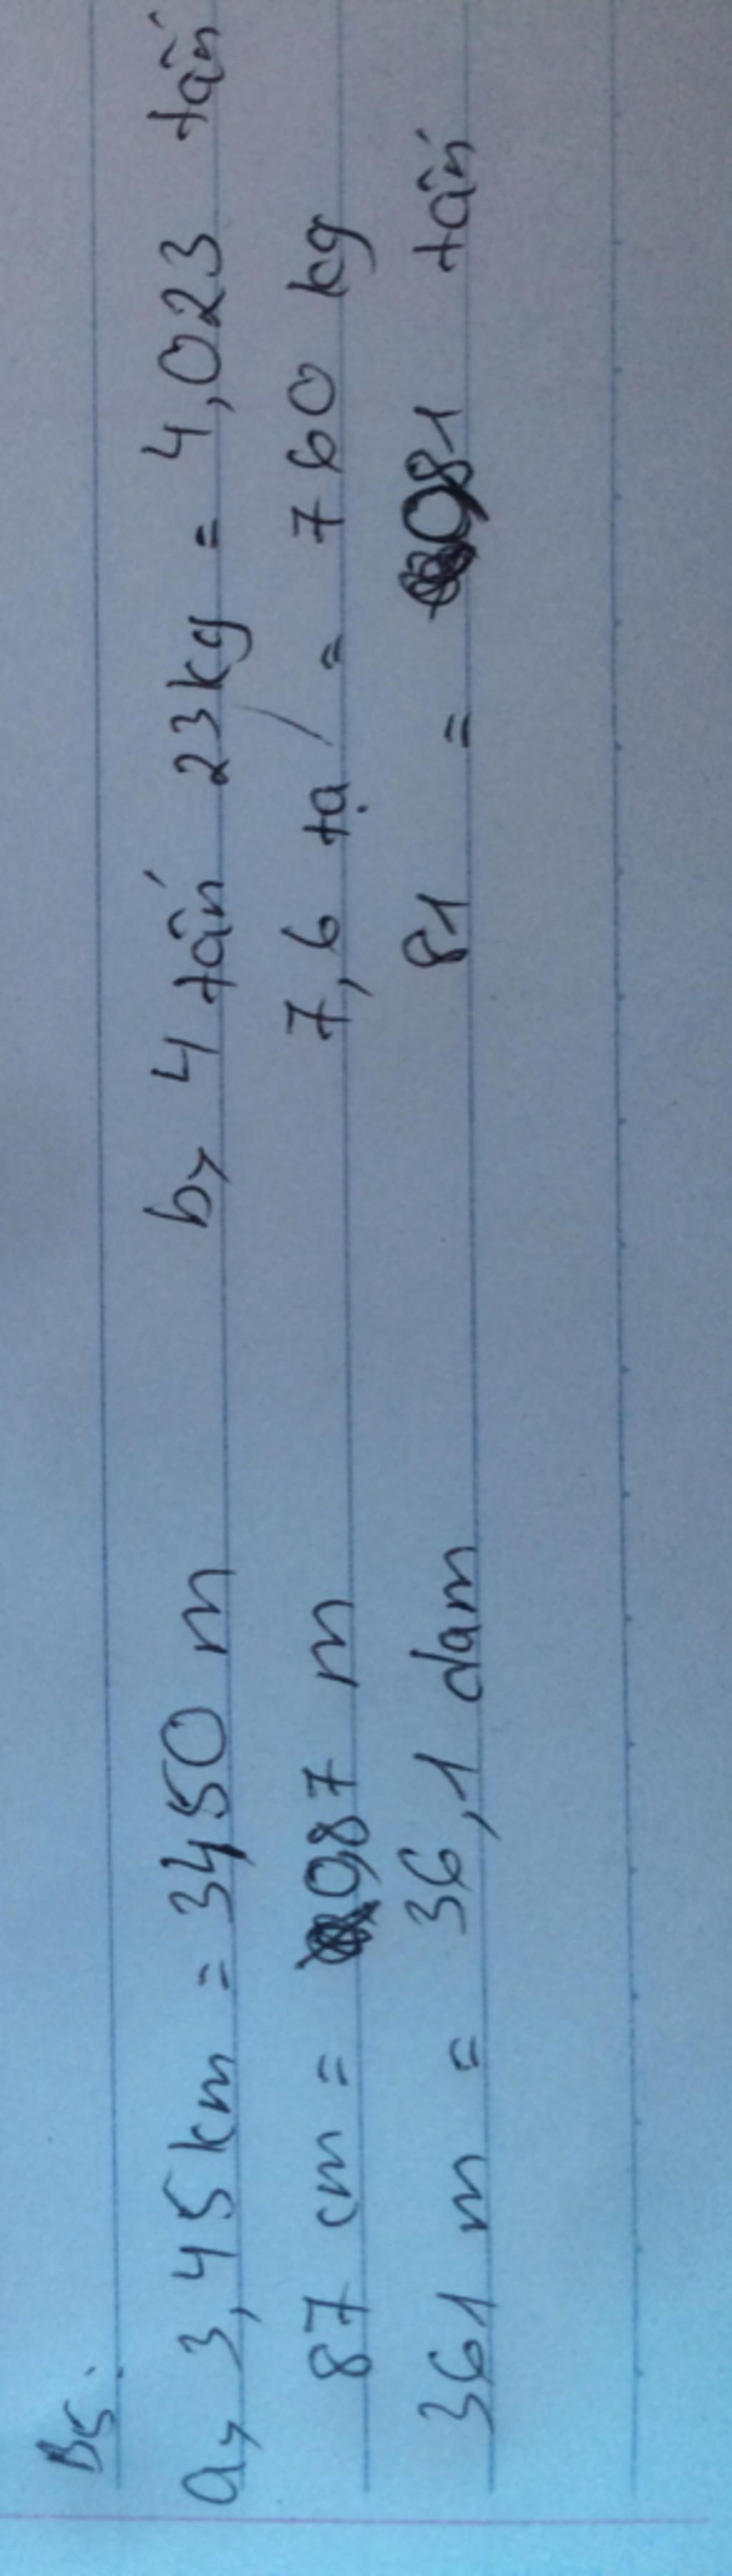 B5.
a, 3,45km = 3450 m b, 4 tấn 23kg = 4,023 tấn
87 cm = 0,87 m 7,6 tạ = 760 kg
361 m = 36,1 dam 81 = 081 tấn